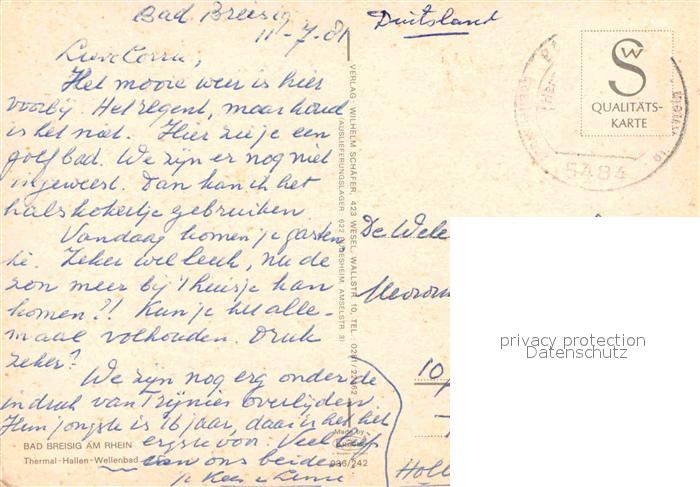 Bad Breisig
11-7-81
Duitsland
Lieve Corrie,
Het mooie weer is hier
voorbij. Het regent, maar koud
is het niet. Hier zie je een
golfbad. We zijn er nog niet
ingeweest. Dan kan ik het
halskokertje gebruiken.
Vandaag komen je gasten
hè. Zeker wel leuk, nu de
zon meer bij Thuisje kan
komen?! Kun je het alle-
maal volhouden. Druk
zeker?
We zijn nog erg onder de
indruk van Trijnies overlijden.
Hun jongste is 16 jaar, daar is het het
ergste voor. Veel liefs
van ons beiden
Kees &
BAD BREISIG AM RHEIN
Thermal-Hallen-Wellenbad
VERLAG - WILHELM SCHÄFER, 423 WESEL, WALLSTR. 10, TEL. 0281/22962
(AUSLIEFERUNGSLAGER: 622 RÜDESHEIM, AMSELSTR. 3)
Made by
986/242
SW
QUALITÄTS-
KARTE
5484
De
10
Holl
privacy protection
Datenschutz